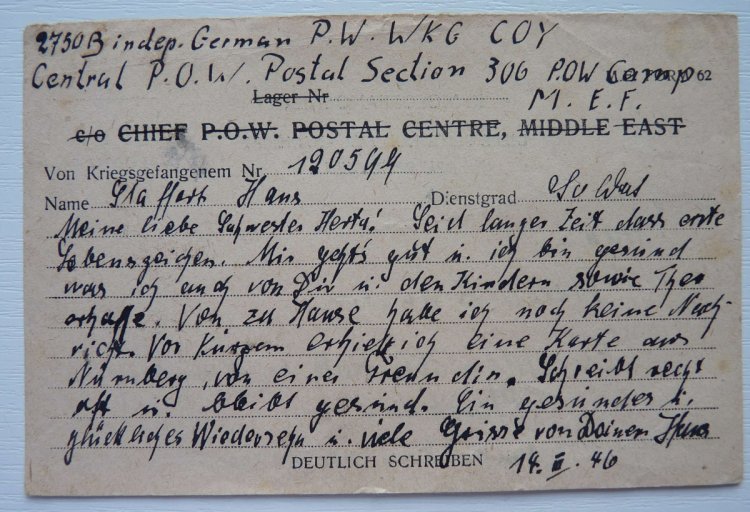 2750 B indep. German P.W. WKG COY
Central P.O.W. Postal Section 306 POW Camp 62
Lager Nr M. E. F.
c/o CHIEF P.O.W. POSTAL CENTRE, MIDDLE EAST
Von Kriegsgefangenem Nr. 120599
Name Hans Dienstgrad Soldat
Meine liebe Schwester Herta! Seid langer Zeit dass erste
Lebenszeichen. Mir geht's gut u. ich bin gesund
was ich auch von Dir u. den Kindern sowie
erhoffe. Von zu Hause habe ich noch keine Nach-
richt. Vor kurzem erhielt ich eine Karte aus
Nürnberg, von einer Freundin. Schreibt recht
oft u. bleibt gesund. Ein gesundes u.
glückliches Wiedersehn u. viele Grüsse von Deinem Hans
DEUTLICH SCHREIBEN 14. II. 46